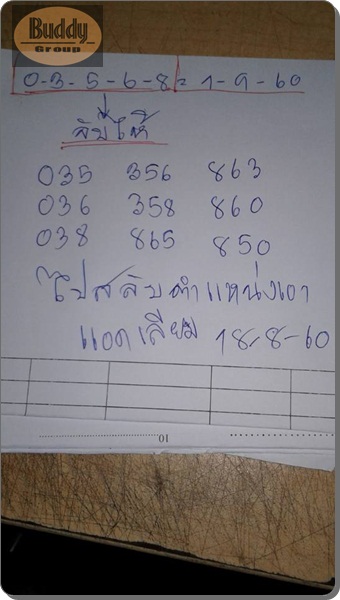 Buddy
Group
0-3-5-6-8 = 1-9-60
จับให้
035 356 863
036 358 860
038 865 850
ไปสลับตำแหน่งเอา
แอดเลียม 18-8-60
01